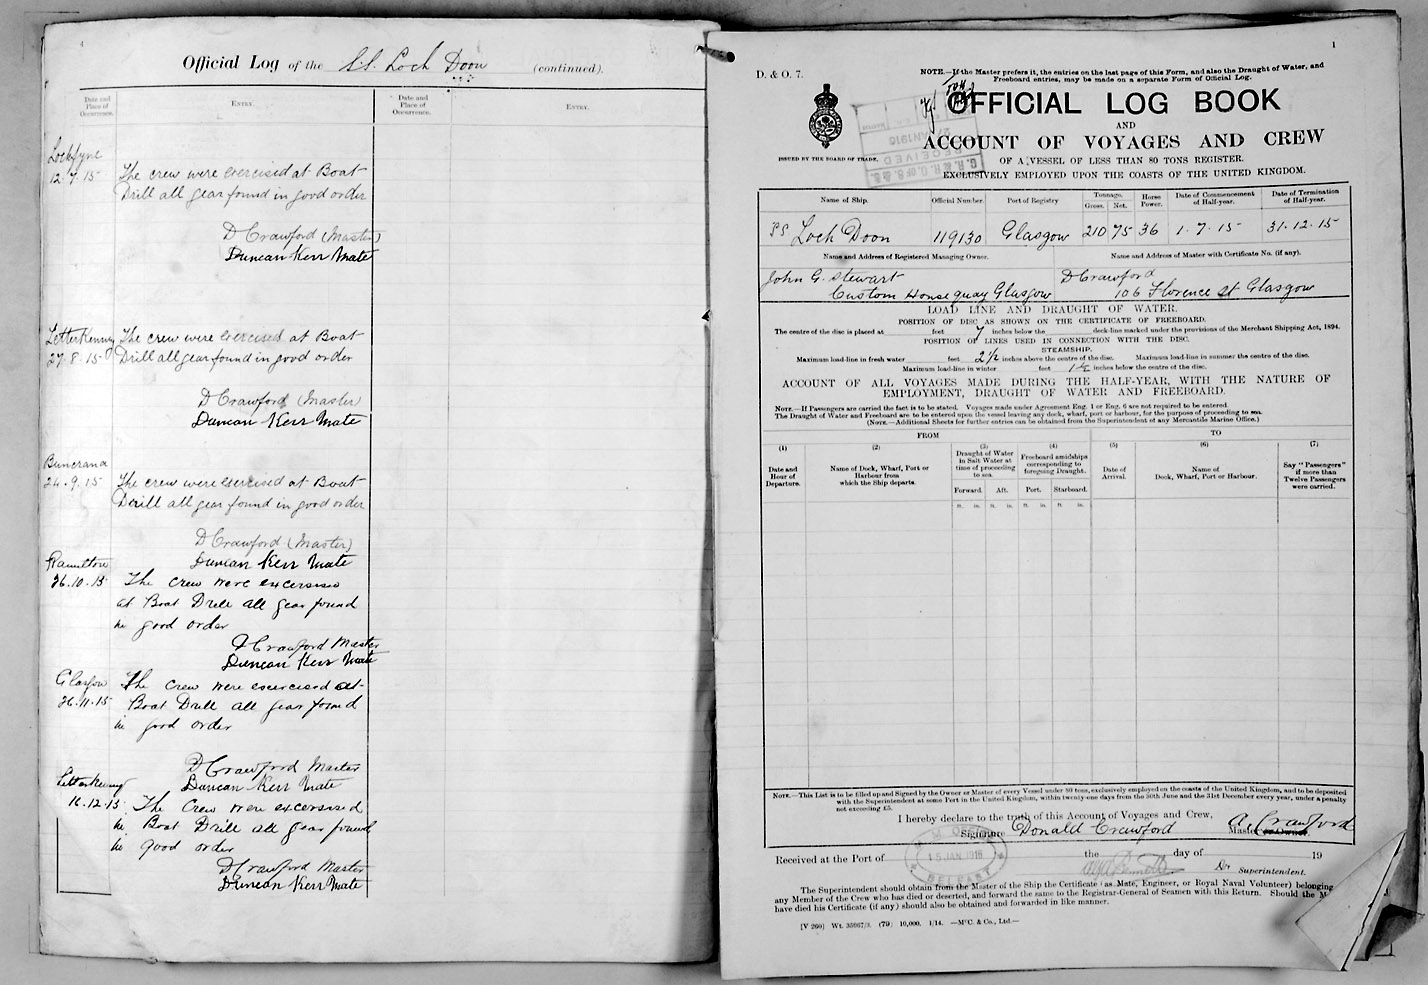 Official Log of the S.S. Loch Doon (continued).
Date and Place of Occurrence.
Entry.
Date and Place of Occurrence.
Entry.
Lochfyne
12.7.15 The crew were exercised at Boat
Drill all gear found in good order
D Crawford (Master)
Duncan Kerr Mate
Letterkenny The crew were exercised at Boat
27.8.15 Drill all gear found in good order
D Crawford (Master)
Duncan Kerr Mate
Buncrana
24.9.15 The crew were exercised at Boat
Drill all gear found in good order
D Crawford (Master)
Duncan Kerr Mate
26.10.15 The crew were
at Boat Drill all gear found
in good order
D Crawford Master
Duncan Kerr Mate
Glasgow The crew were exercised at
26.11.15 Boat Drill all gear found
in good order
D Crawford Master
Duncan Kerr Mate
Letterkenny
16.12.15 The Crew were excersised
in Boat Drill all gear found
in good order
D Crawford Master
Duncan Kerr Mate
1
D. & O. 7.
NOTE.—If the Master prefers it, the entries on the last page of this Form, and also the Draught of Water, and
Freeboard entries, may be made on a separate Form of Official Log.
OFFICIAL LOG BOOK
AND
ACCOUNT OF VOYAGES AND CREW
ISSUED BY THE BOARD OF TRADE.
OF A VESSEL OF LESS THAN 80 TONS REGISTER.
EXCLUSIVELY EMPLOYED UPON THE COASTS OF THE UNITED KINGDOM.
RECEIVED
G. R. & R. O. of S. & S.
Name of Ship.
Official Number.
Port of Registry
Tonnage.
Gross. Net.
Horse Power.
Date of Commencement of Half-year.
Date of Termination of Half-year.
SS Loch Doon 119130 Glasgow 210 75 36 1.7.15 31.12.15
Name and Address of Registered Managing Owner.
Name and Address of Master with Certificate No. (if any).
John G. Stewart D Crawford
Custom House quay Glasgow 106 Florence St Glasgow
LOAD LINE AND DRAUGHT OF WATER.
POSITION OF DISC AS SHOWN ON THE CERTIFICATE OF FREEBOARD.
The centre of the disc is placed at feet 7 inches below the deck-line marked under the provisions of the Merchant Shipping Act, 1894.
POSITION OF LINES USED IN CONNECTION WITH THE DISC.
STEAMSHIP.
Maximum load-line in fresh water feet 2½ inches above the centre of the disc. Maximum load-line in summer the centre of the disc.
Maximum load-line in winter feet 1½ inches below the centre of the disc.
ACCOUNT OF ALL VOYAGES MADE DURING THE HALF-YEAR, WITH THE NATURE OF
EMPLOYMENT, DRAUGHT OF WATER AND FREEBOARD.
NOTE.—If Passengers are carried the fact is to be stated. Voyages made under Agreement Eng. 1 or Eng. 6 are not required to be entered.
The Draught of Water and Freeboard are to be entered upon the vessel leaving any dock, wharf, port or harbour, for the purpose of proceeding to sea.
(NOTE.—Additional Sheets for further entries can be obtained from the Superintendent of any Mercantile Marine Office.)
FROM
TO
(1) (2) (3) (4) (5) (6) (7)
Date and Hour of Departure.
Name of Dock, Wharf, Port or Harbour from which the Ship departs.
Draught of Water in Salt Water at time of proceeding to sea.
Freeboard amidships corresponding to foregoing Draught.
Date of Arrival.
Name of Dock, Wharf, Port or Harbour.
Say "Passengers" if more than Twelve Passengers were carried.
Forward. Aft. Port. Starboard.
ft. in. ft. in. ft. in. ft. in.
NOTE.—This List is to be filled up and Signed by the Owner or Master of every Vessel under 80 tons, exclusively employed on the coasts of the United Kingdom, and to be deposited
with the Superintendent at some Port in the United Kingdom, within twenty-one days from the 30th June and the 31st December every year, under a penalty
not exceeding £5.
I hereby declare to the truth of this Account of Voyages and Crew,
Signature Donald Crawford Master or Owner. Crawford
Received at the Port of the day of 19
15 JAN. 1916
BELFAST
Superintendent.
The Superintendent should obtain from the Master of the Ship the Certificate (as Mate, Engineer, or Royal Naval Volunteer) belonging
any Member of the Crew who has died or deserted, and forward the same to the Registrar-General of Seamen with this Return. Should the
have died his Certificate (if any) should also be obtained and forwarded in like manner.
[V 260] Wt. 35967/3. (79) 10,000. 1/14. —McC. & Co., Ltd.—